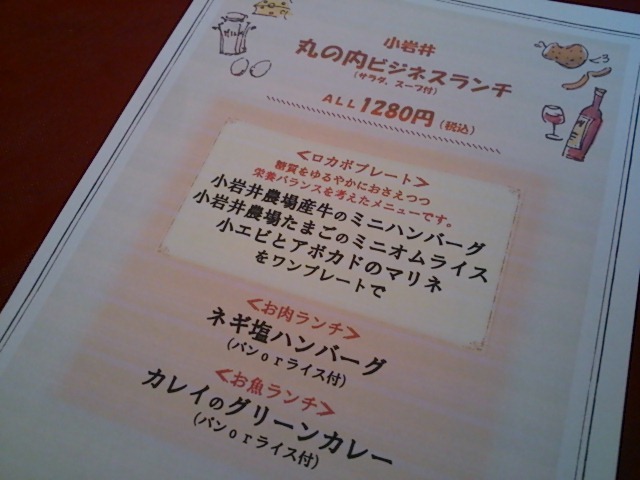 小岩井
丸の内ビジネスランチ
(サラダ、スープ付)
ALL1280円(税込)
<ロカボプレート>
糖質をゆるやかにおさえつつ
栄養バランスを考えたメニューです。
小岩井農場産牛のミニハンバーグ
小岩井農場たまごのミニオムライス
小エビとアボカドのマリネ
をワンプレートで
<お肉ランチ>
ネギ塩ハンバーグ
(パンorライス付)
<お魚ランチ>
カレイのグリーンカレー
(パンorライス付)